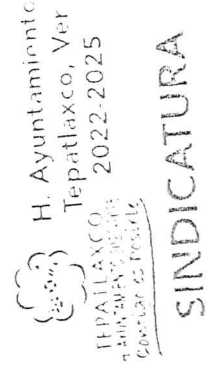 H. Ayuntamiento
Tepatlaxco, Ver
2022-2025
TEPATLAXCO
SINDICATURA